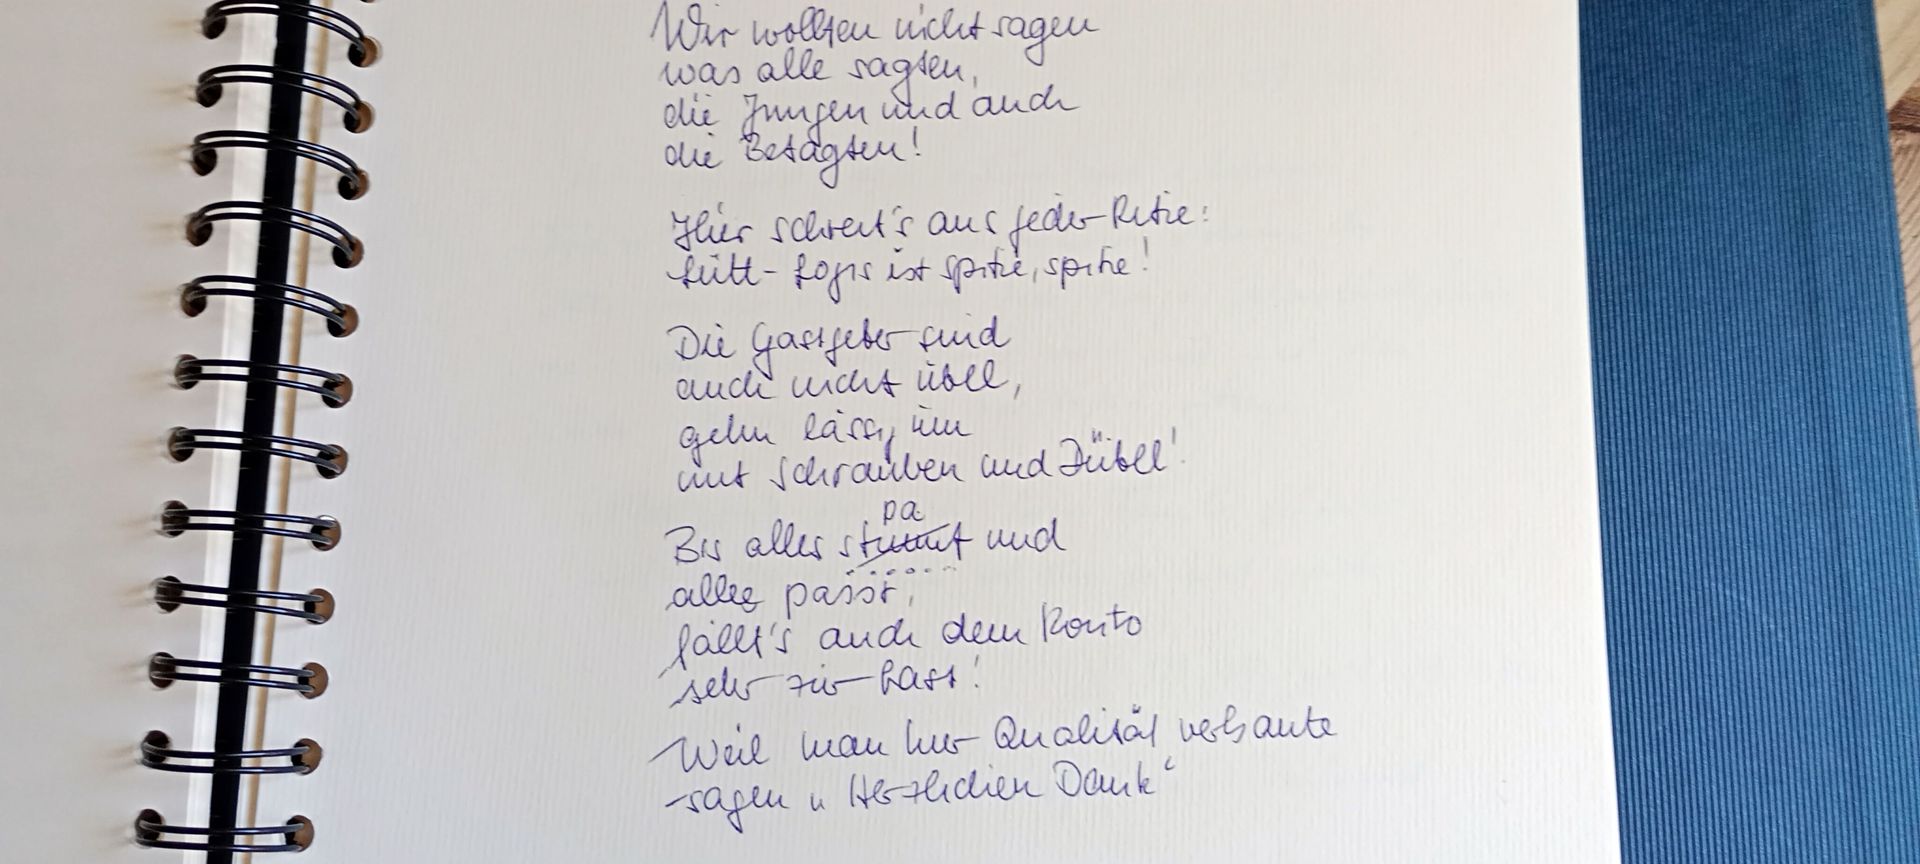 Wir wollten nicht sagen
was alle sagten,
die Jungen und auch
die Betagten!
Hier schreit's aus jeder Ritze:
Lütt-Logis ist spitze, spitze!
Die Gastgeber sind
auch nicht übel,
gehn lässig um
mit Schrauben und Dübel!
pa
Bis alles stimmt und
alles passt,
fällt's auch dem Konto
sehr zur Last!
Weil man hier Qualität verbaute
sagen " Herzlichen Dank"